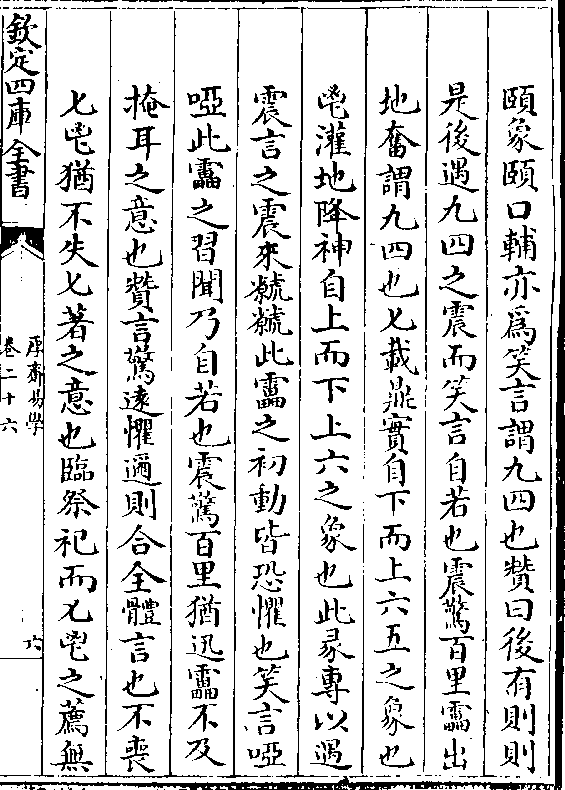 頤象頤口輔亦為笑言謂九四也贊曰後有則則
是後遇九四之震而笑言自若也震驚百里靁出
地奮謂九四也匕載鼎實自下而上六五之象也
鬯灌地降神自上而下上六之象也此彖專以遇
震言之震來虩虩此靁之初動皆恐懼也笑言啞
啞此靁之習聞乃自若也震驚百里猶迅靁不及
掩耳之意也贊言驚逺懼邇則合全體言也不喪
匕鬯猶不失匕著之意也臨祭祀而匕鬯之薦無
欽定四庫全書
厚齋易學
卷二十六
六